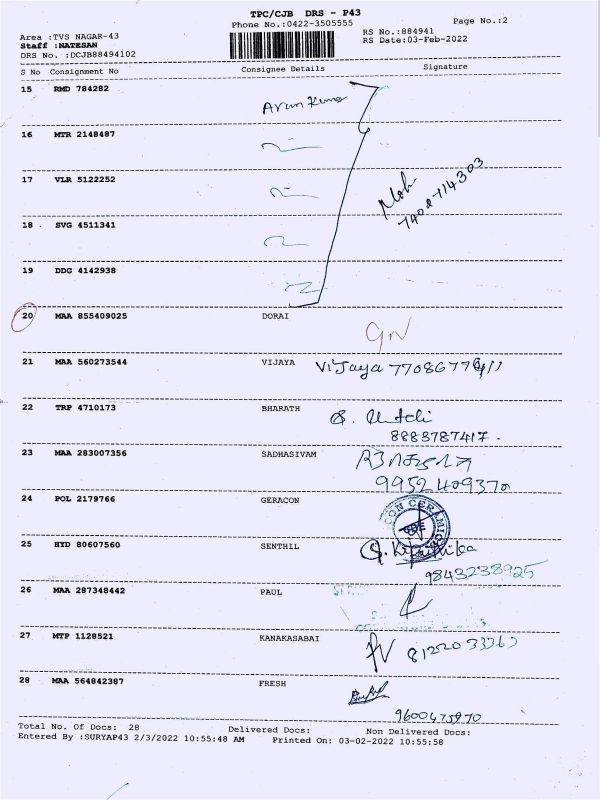 TPC/CJB DRS - P43
Phone No.:0422-3505555
Page No.:2
Area :TVS NAGAR-43
RS No.:884941
Staff :NATESAN
RS Date:03-Feb-2022
DRS No. :DCJB88494102
S No Consignment No Consignee Details Signature
15 RMD 784282
Arun Kumar
16 MTR 2148487
17 VLR 5122252
7402714303
18 SVG 4511341
19 DDG 4142938
20 MAA 855409025 DORAI
21 MAA 560273544 VIJAYA Vijaya
22 TRP 4710173 BHARATH
8883787417.
23 MAA 283007356 SADHASIVAM
9952409370
24 POL 2179766 GERACON
CON CERAMIC
25 HYD 80607560 SENTHIL
9843238925
26 MAA 287348442 PAUL
27 MTP 1128521 KANAKASABAI
28 MAA 564842387 FRESH
9600475970
Total No. Of Docs: 28 Delivered Docs: Non Delivered Docs:
Entered By :SURYAP43 2/3/2022 10:55:48 AM Printed On: 03-02-2022 10:55:58